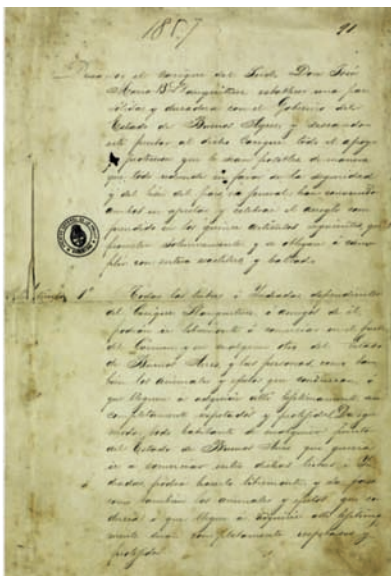 1857
91
Deseando el Cacique del Sud, Don José
Maria B. Yanquitruz establecer una paz
sólida y duradera con el Gobierno del
Estado de Buenos Ayres, y deseando
este prestar al dicho Cacique todo el apoyo
y proteccion que le sean posibles de manera
que todo redunde en favor de la seguridad
y del bien del pais en general, han convenido
ambos en ajustar y celebrar el arreglo com
prendido en los quince artículos siguientes, que
prometen solemnemente y se obligan á cum
plir con entera exactitud y lealtad.
1º Todas las tribus é Indiadas dependientes
del Cacique Yanquitruz, ó amigas de él,
podrán ir libremente á comerciar en el fuerte
del Carmen y en cualquier otro del Estado
de Buenos Aires, y las personas, como tam
bien los animales y efectos que condujeran, ó
que lleguen á adquirir allí legítimamente serán
completamente respetados y protegidos. Del mismo
modo, todo habitante de cualquier punto
del Estado de Buenos Aires que quiera
ir á comerciar entre dichas tribus é In
diadas podrá hacerlo libremente, y su persona
como tambien los animales y efectos que con
duzca ó que llegue á adquirir allí legítima
mente serán completamente respetados y
protegidos.